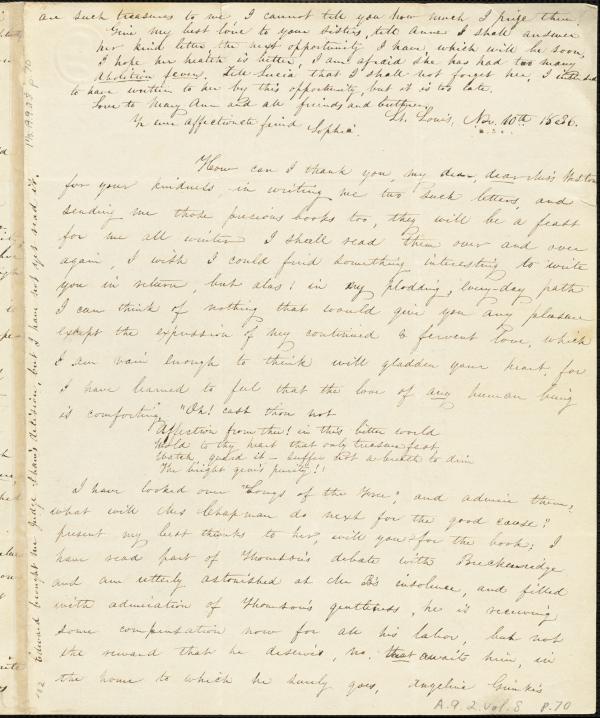 are such treasures to me, I cannot tell you how much I prize them
Give my best love to your sisters, tell Anne I shall answer
her kind letter the next opportunity I have, which will be soon,
I hope her health is better, I am afraid she has had too many
abolition fever. Tell Lucia that I shall not forget her, I intended
to have written to her by this opportunity, but it is too late.
Love to Mary Ann and all friends and
Yr ever affectionate friend Sophia.
St. Louis, Nov. 10th 1836.
How can I thank you, my dear, dear Miss Weston
for your kindness, in writing me two such letters, and
sending me those precious books too, they will be a feast
for me all winter I shall read them over and over
again, I wish I could find something interesting to write
you in return, but alas! in my plodding, every-day path
I can think of nothing that would give you any pleasure
except the expression of my continued & fervent love, which
I am vain enough to think will gladden your heart, for
I have learned to feel that the love of any human being
is comforting, "Oh! cast thou not
Affection from thee! in this bitter world
Hold to thy heart that only treasure fast
Watch, guard it - suffer not a breath to dim
The bright gem's purity!!
I have looked over "Songs of the Free", and admire them,
what will Mrs Chapman do next for the good cause?
present my best thanks to her, will you for the book; I
have read part of Thomson's debate with Breckenridge
and am utterly astonished at Mr B's insolence, and filled
with admiration of Thomson's gentleness, he is receiving
some compensation now for all his labor, but not
the reward that he deserves, no, that awaits him, in
the home to which he surely goes, Angelina Grimkés
Edward brought me Judge Shaw's decision, but I have not yet read it.
A.9.2.vol.8 p.70